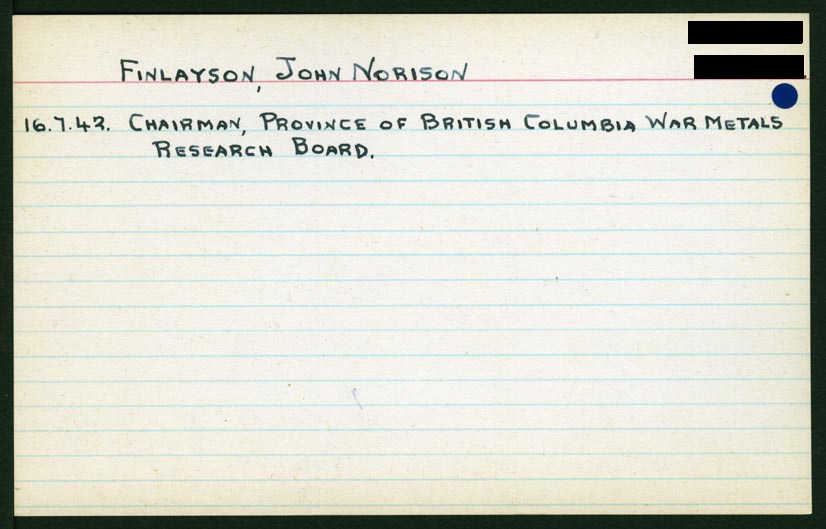 FINLAYSON, JOHN NORISON
16.7.43. CHAIRMAN, PROVINCE OF BRITISH COLUMBIA WAR METALS
RESEARCH BOARD.